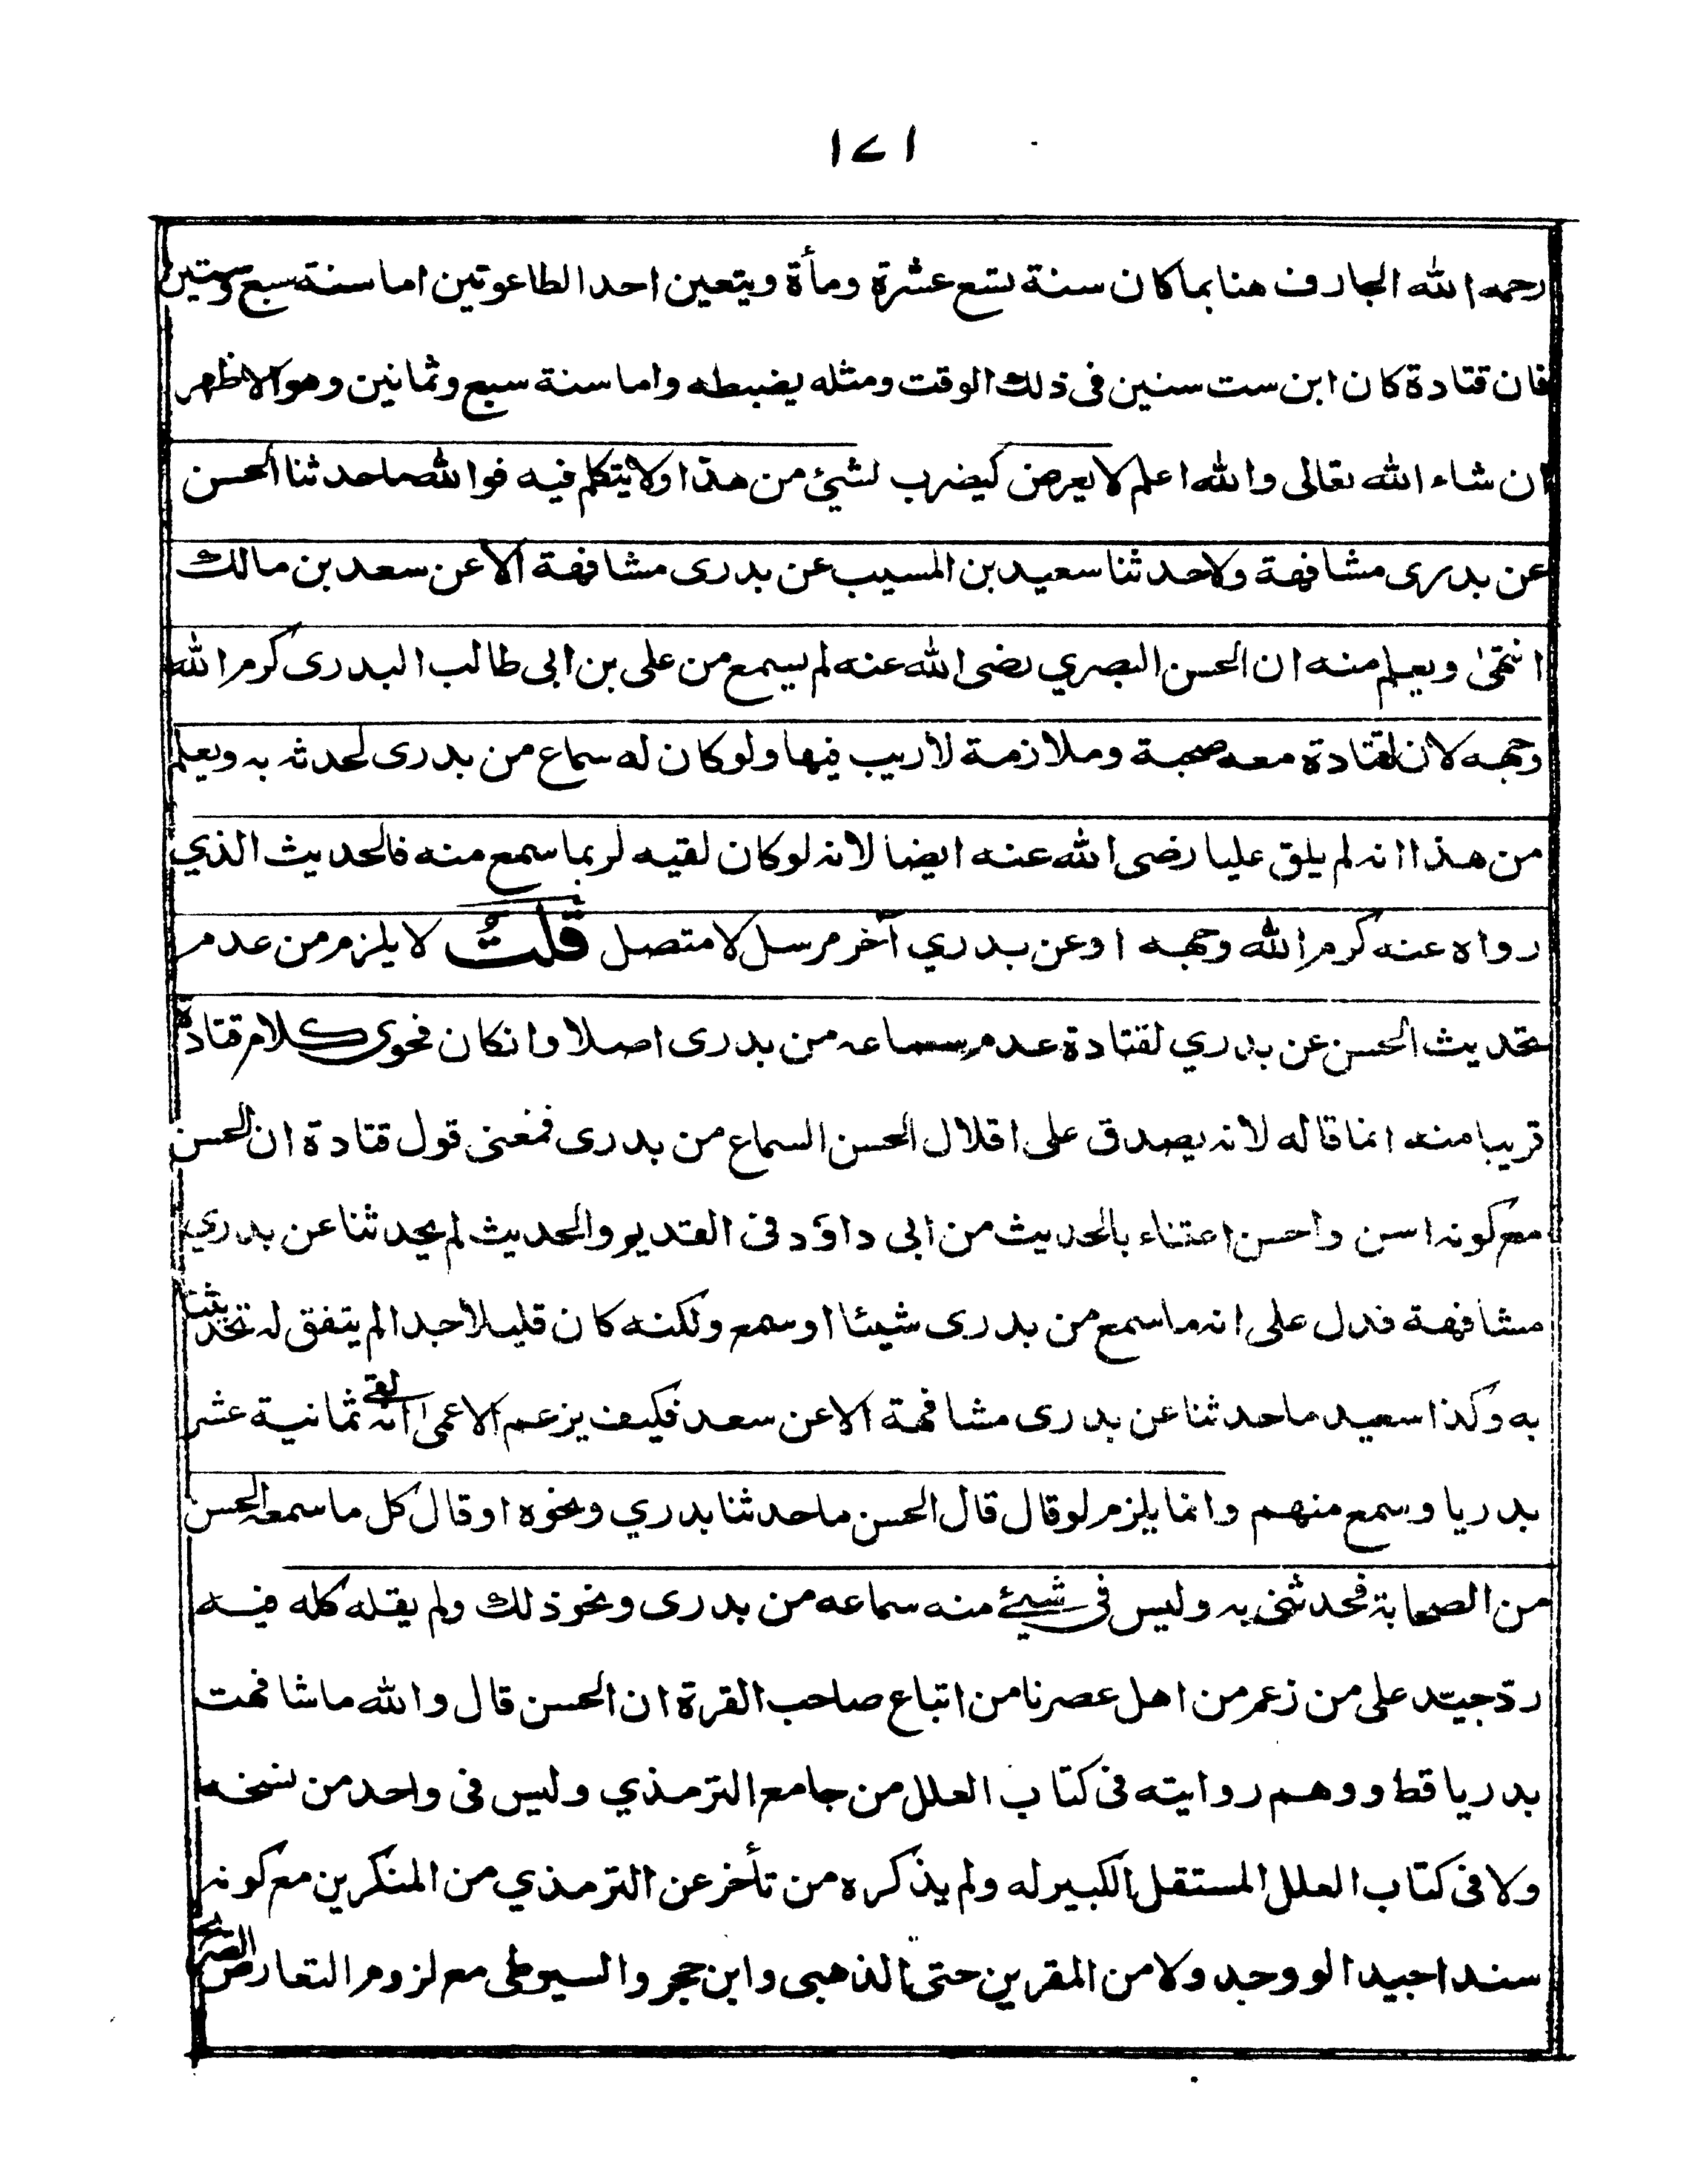 ١٧١
رحمه الله الجارف هنا بما كان سنة تسع عشرة ومأة ويتعين احد الطاعونين اما سنة سبع وستين
فان قتادة كان ابن ست سنين فى ذلك الوقت ومثله يضبطه واما سنة سبع وثمانين وهو الاظهر
ان شاء الله تعالى والله اعلم لا يعرض لشئ من هذا ولا يتكلم فيه فوالله ما حدثنا الحسن
عن بدرى مشافهة ولا حدثنا سعيد بن المسيب عن بدرى مشافهة الا عن سعد بن مالك
انتهىٰ ويعلم منه ان الحسن البصري رضى الله عنه لم يسمع من على بن ابى طالب البدرى كرم الله
وجهه لان لقتادة معه صحبة وملازمة لا ريب فيها ولو كان له سماع من بدرى لحدثه به ويعلم
من هذا انه لم يلق عليا رضى الله عنه ايضا لانه لو كان لقيه لربما سمع منه فالحديث الذي
رواه عنه كرم الله وجهه او عن بدري آخر مرسل لا متصل قلتُ لا يلزم من عدم
تحديث الحسن عن بدري لقتادة عدم سماعه من بدرى اصلا وانكان فحوى كلام قتادة
قريبا منه انما قاله لانه يصدق على اقلال الحسن السماع من بدرى فمعنى قول قتادة ان الحسن
مع كونه اسن واحسن اعتناء بالحديث من ابى داؤد فى القديم والحديث لم يحدثنا عن بدري
مشافهة فدل على انه ما سمع من بدرى شيئا او سمع ولكنه كان قليلا جدا لم يتفق له تحديثنا
به وكذا سعيد ما حدثنا عن بدرى مشافهة الا عن سعد فكيف يزعم الاعمىٰ انه لقى ثمانية عشر
بدريا وسمع منهم وانما يلزم لو قال قال الحسن ما حدثنا بدري ونحوه او قال كل ما سمعه الحسن
من الصحابة فحدثنى به وليس فى شيئ منه سماعه من بدرى ونحو ذلك ولم يقله كله فيه
ردّ جيّد على من زعم من اهل عصرنا من اتباع صاحب القرة ان الحسن قال والله ما شافهت
بدريا قط ووهم روايته فى كتاب العلل من جامع الترمذي وليس فى واحد من نسخه
ولا فى كتاب العلل المستقل الكبير له ولم يذكره من تأخر عن الترمذي من المنكرين مع كونه
سندا جيدا لو وجد ولا من المقرين حتى الذهبى وابن حجر والسيوطى مع لزوم التعارض الصريح